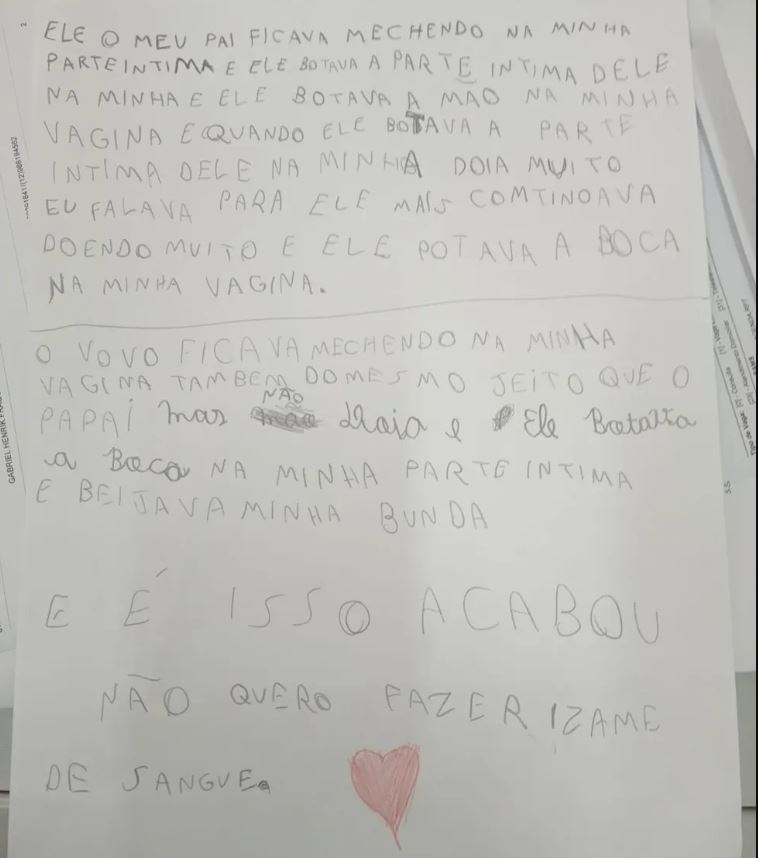 ELE O MEU PAI FICAVA MECHENDO NA MINHA
PARTE INTIMA E ELE BOTAVA A PARTE INTIMA DELE
NA MINHA E ELE BOTAVA A MAO NA MINHA
VAGINA E QUANDO ELE BOTAVA A PARTE
INTIMA DELE NA MINHA DOIA MUITO
EU FALAVA PARA ELE MAIS COMTINOAVA
DOENDO MUITO E ELE POTAVA A BOCA
NA MINHA VAGINA.
O VOVO FICAVA MECHENDO NA MINHA
VAGINA TAMBEM DO MESMO JEITO QUE O
PAPAÍ mas NÃO doia e Ele Botava
a Boca NA MINHA PARTE INTIMA
E BEIJAVA MINHA BUNDA
E É ISSO ACABOU
NÃO QUERO FAZER IZAME
DE SANGUE.